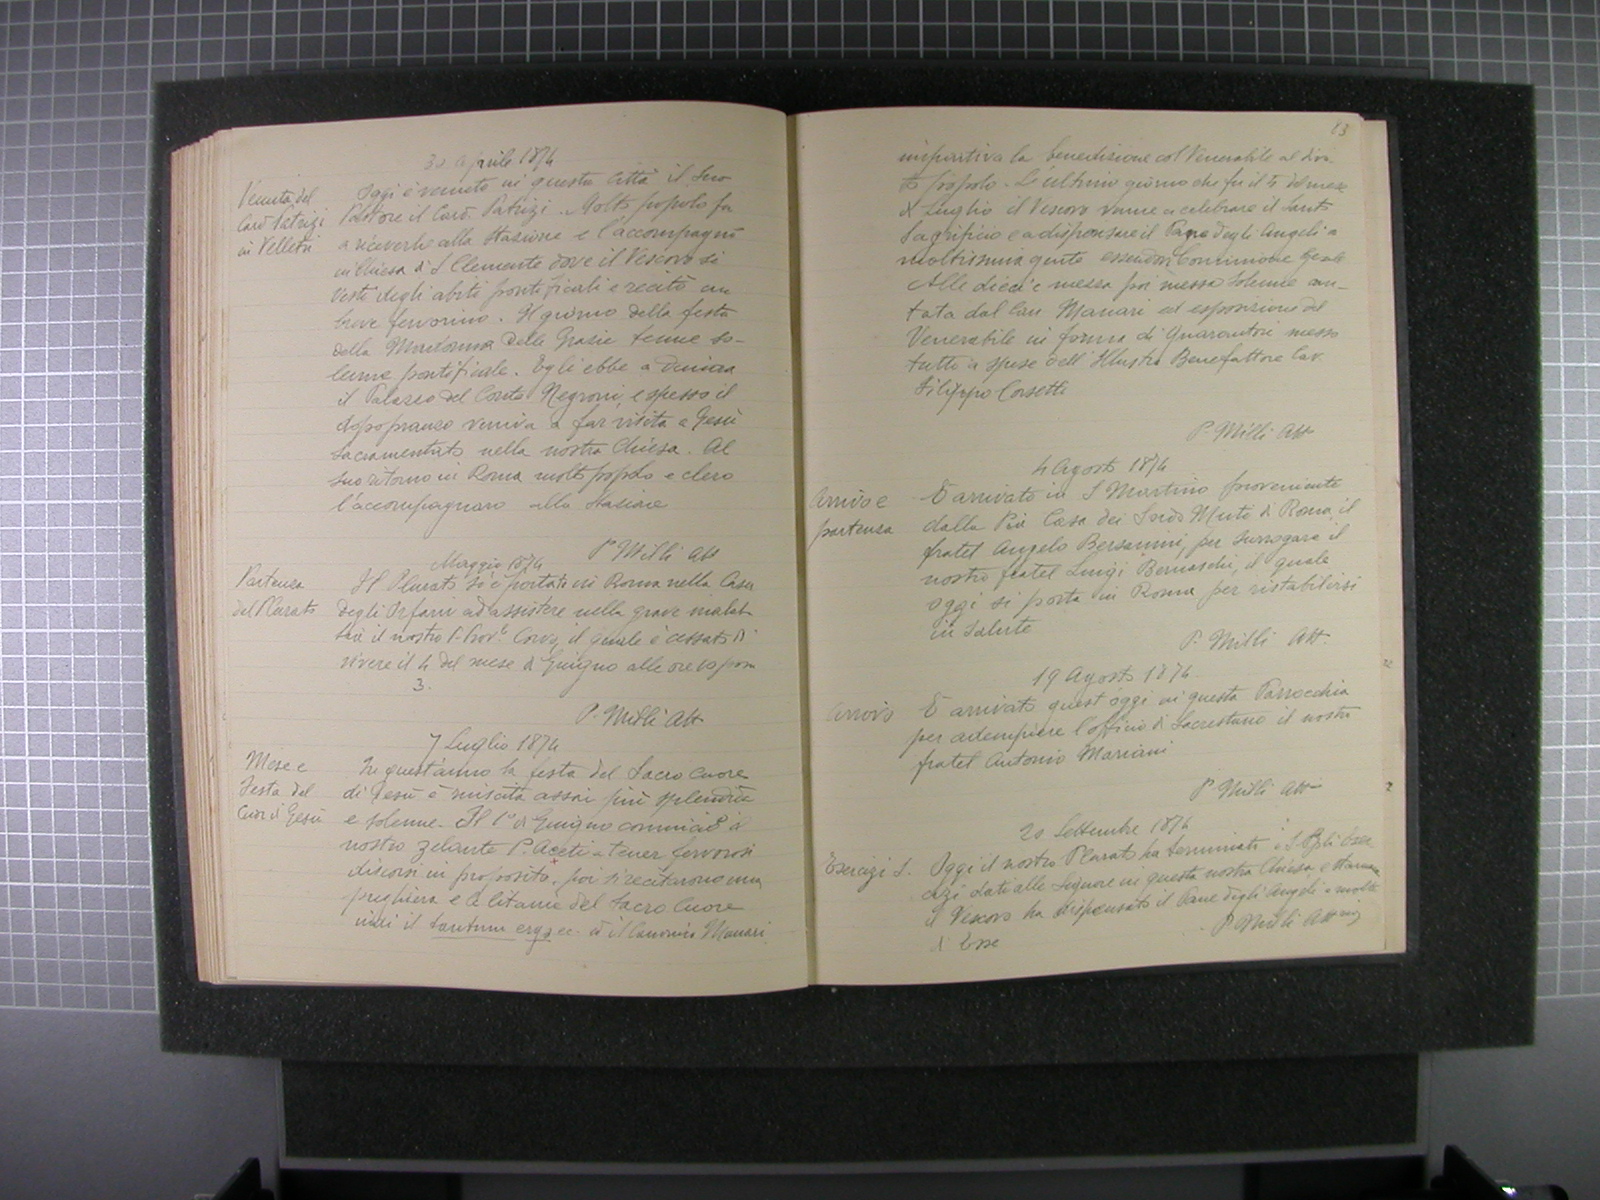 30 Aprile 1874
Venuta del
Card Patrizi
in Velletri
Oggi è venuto in questa Città il Suo
Pastore il Card. Patrizi. Molto popolo fu
a riceverlo alla Stazione e l'accompagnò
in Chiesa di S Clemente dove il Vescovo si
vestì degli abiti pontificali e recitò un
breve fervorino. Il giorno della festa
della Madonna delle Grazie tenne so-
lenne pontificale. Egli ebbe a dimora
il Palazzo del Conte Negroni, e spesso il
dopopranzo veniva a far visita a Gesù
Sacramentato nella nostra Chiesa. Al
suo ritorno in Roma molto popolo e clero
l'accompagnaro alla Stazione
P Milli Att
Maggio 1874
Partenza
del P Curato
Il P Curato si è portato in Roma nella Casa
degli Orfani ad assistere nella grave malat
tia il nostro P. Prov.le Corvo, il quale è cessato di
vivere il 4 del mese di Giugno alle ore 10 pom
3.
P. Milli Att
7 Luglio 1874
Mese e
Festa del
Cuor di Gesù
In quest'anno la festa del Sacro Cuore
di Gesù è riuscita assai più splendida
e solenne. Il 1° di Giugno cominciò il
nostro zelante P. Aceti a tener fervorosi
discorsi in proposito, poi si recitarono una
preghiera e le litanie del Sacro Cuore
indi il tantum ergo ec. ed il Canonico Manari
83
impartiva la benedizione col Venerabile al divo
to popolo. L'ultimo giorno che fu il 4 del mese
di Luglio il Vescovo venne a celebrare il Santo
Sagrificio e a dispensare il Pane degli Angeli a
moltissima gente essendovi Comunione Gen.le
Alle dieci e mezza poi messa Solenne can-
tata dal Can Manari ed esposizione del
Venerabile in forma di Quarantore messo
tutto a spese dell'Illustre Benefattore Cav.
Filippo Corsetti
P. Milli Att
4 Agosto 1874
Arrivo e
partenza
È arrivato in S Martino proveniente
dalla Pia Casa dei Sordo Muti di Roma il
fratel Angelo Bersanini, per surrogare il
nostro fratel Luigi Bernaschi, il quale
oggi si porta in Roma per ristabilirsi
in Salute
P. Milli Att.
19 Agosto 1874.
Arrivo
È arrivato quest'oggi in questa Parrocchia
per adempiere l'officio di Sacrestano il nostro
fratel Antonio Mariani
P Milli Att
20 Settembre 1874
Esercizi S.
Oggi il nostro P Curato ha terminati i S. Spli Eser
cizi dati alle Signore in questa nostra Chiesa, e stamane
il Vescovo ha dispensato il Pane degli Angeli a molte
di Esse
P Milli Att